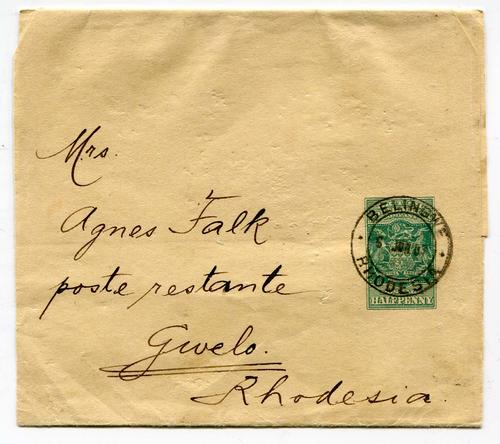 Mrs.
Agnes Falk
poste restante
Gwelo.
Rhodesia.
BELINGWE
RHODESIA
HALFPENNY